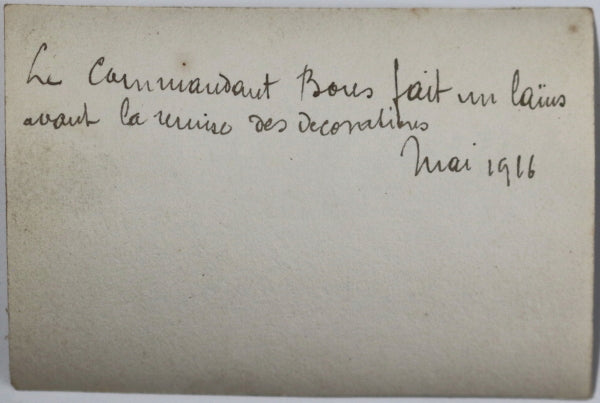 Le Commandant Bores fait un laïus
avant la remise des decorations
Mai 1916